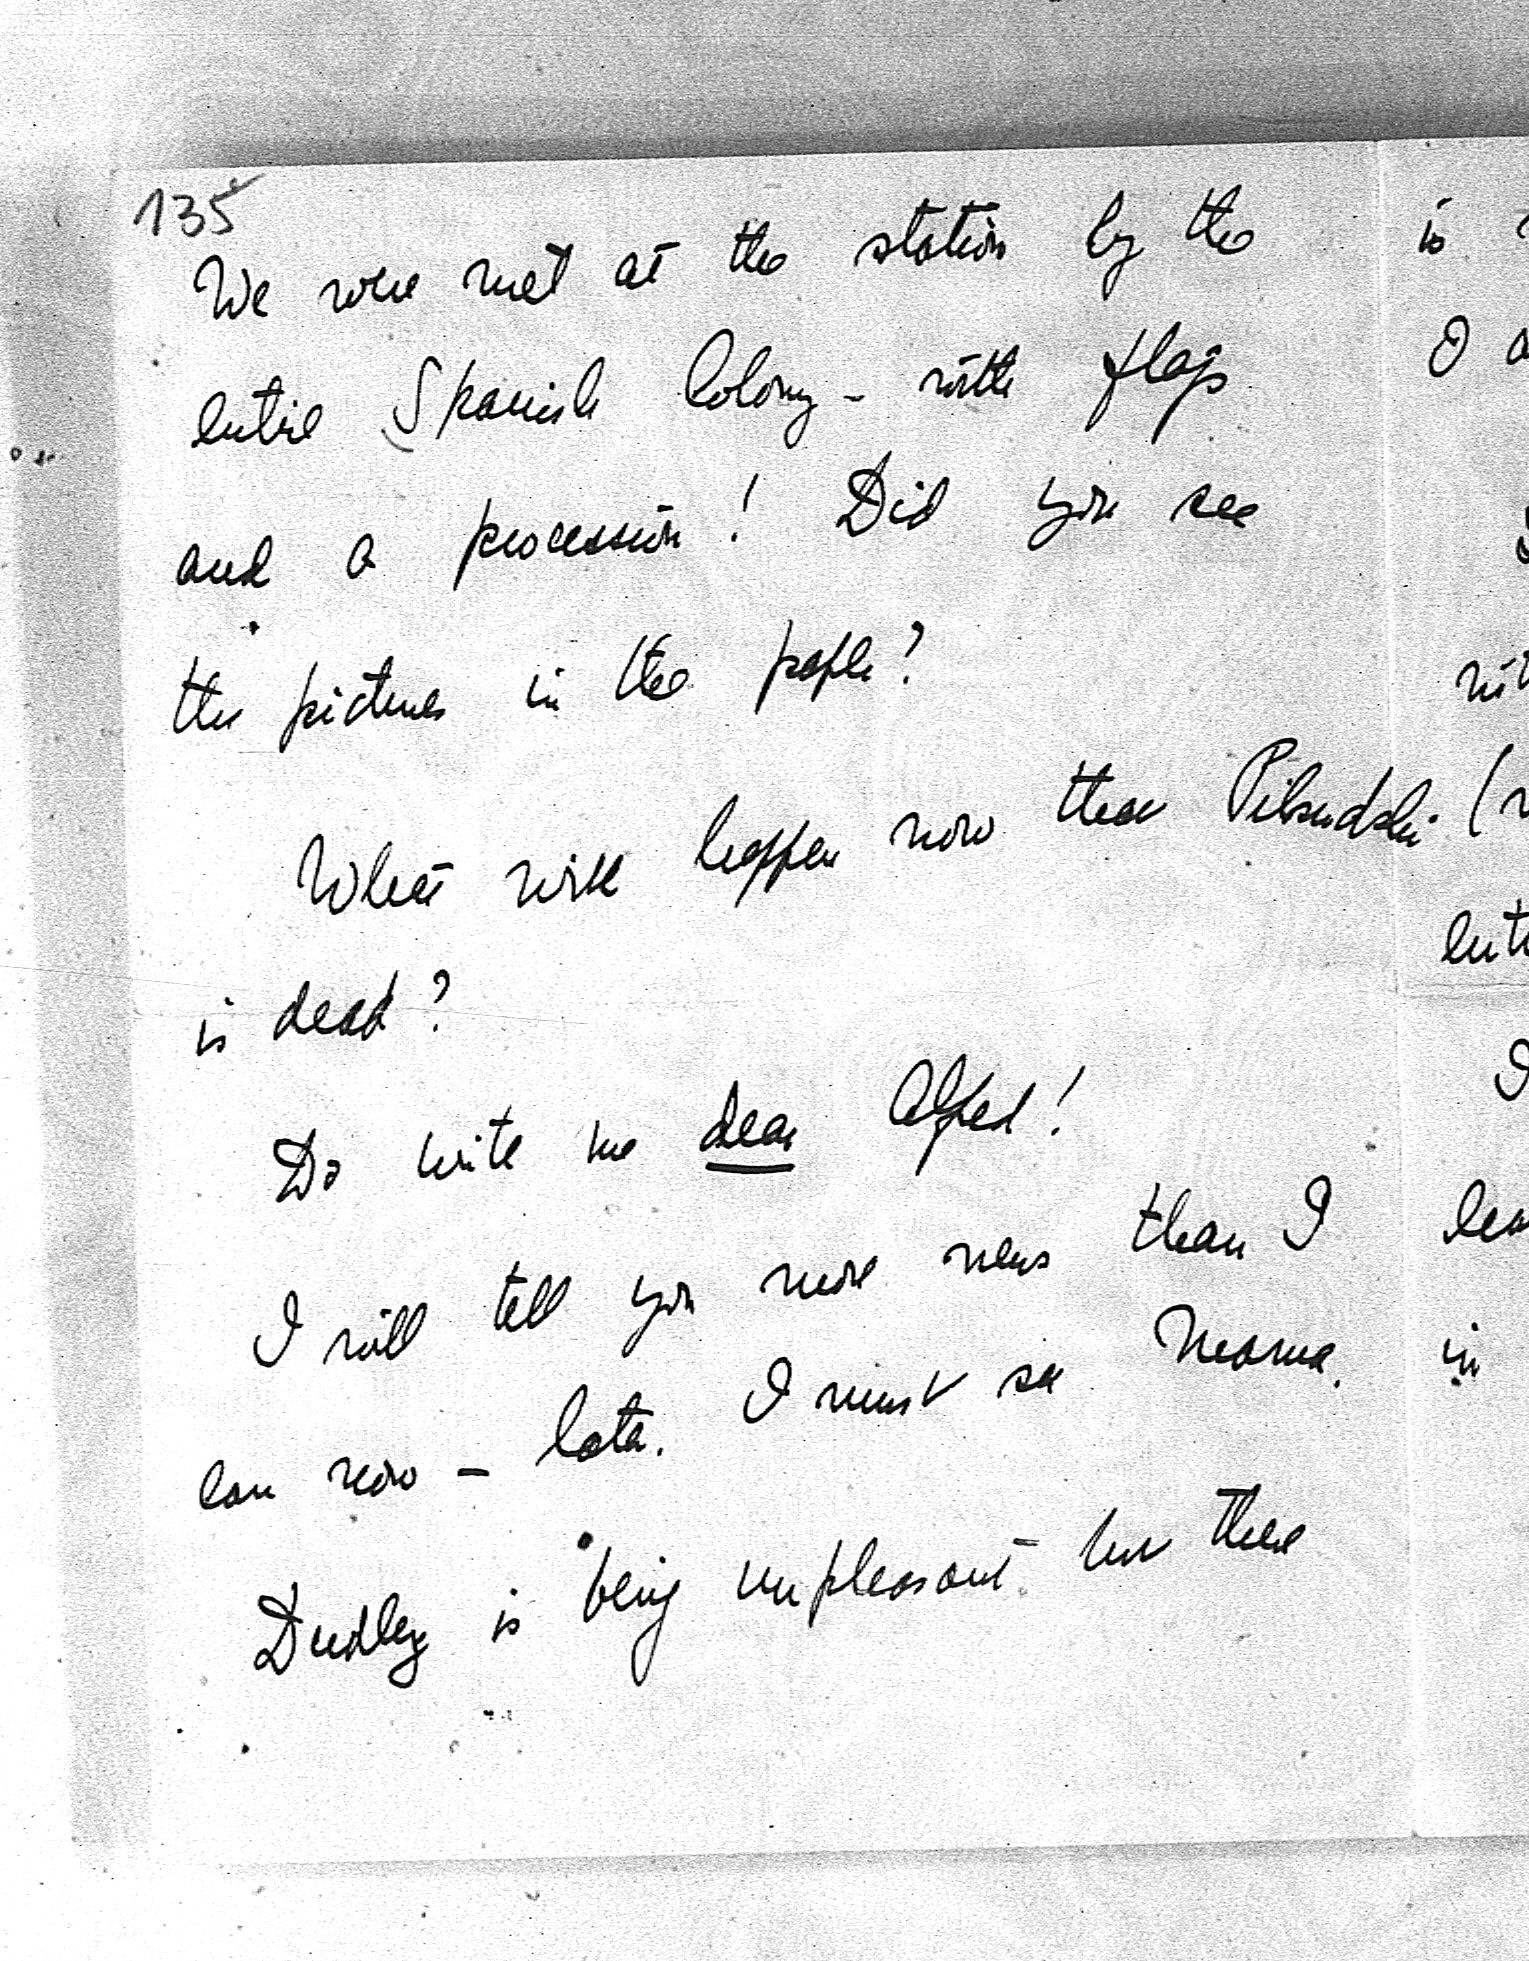 135
We were met at the station by the
entire Spanish Colony - with flags
and a procession! Did you see
the pictures in the paper?
What will happen now that Pilsudski
is dead?
Do write me dear Alfred!
I will tell you more news than I
can now - later. I must see Mama.
Dudley is being unpleasant - but there
is
I
in